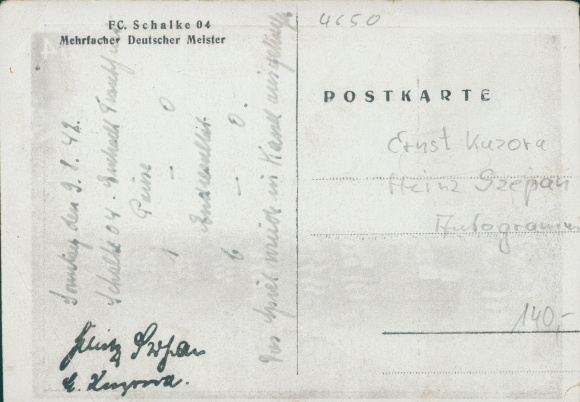 FC. Schalke 04
Mehrfacher Deutscher Meister
Sonntag den 9. 8. 42.
Schalke 04 - Eintracht Frankfurt
Pause
1 - 0
Endresultat
6 - 0.
Das Spiel wurde in Kassel ausgetragen
Szepan
E. Kuzorra.
4650
POSTKARTE
Ernst Kuzora
Heinz Szepan
Autogramm
140,-